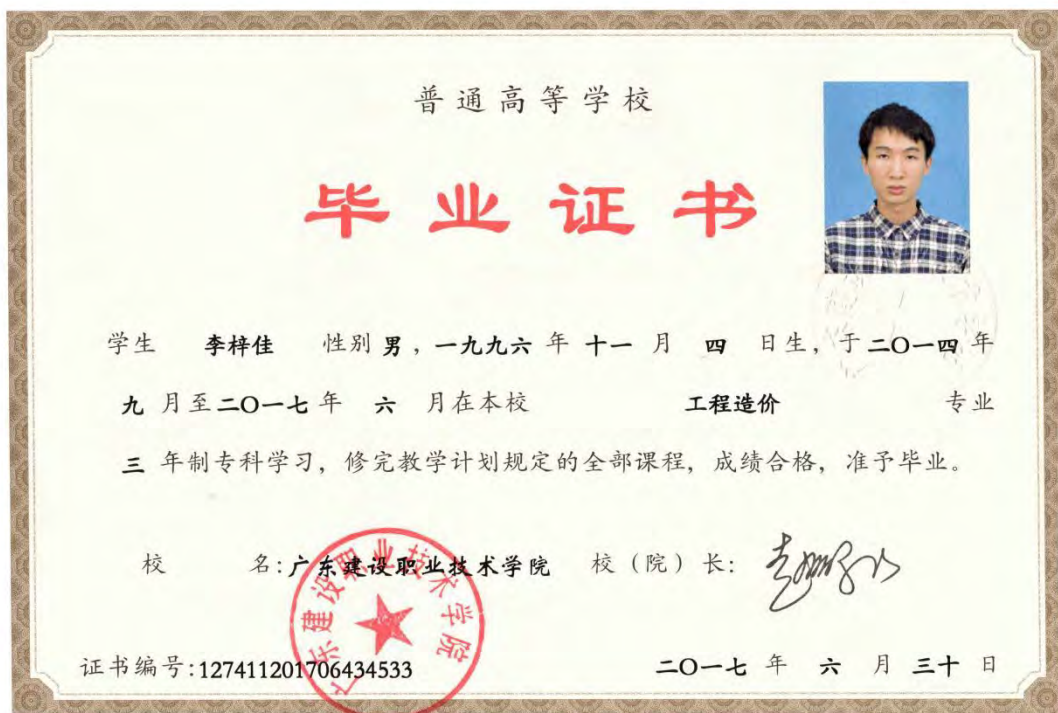 普通高等学校
毕业证书
学生 李梓佳 性别 男，一九九六 年 十一 月 四 日生，于 二〇一四 年
九 月至 二〇一七 年 六 月在本校 工程造价 专业
三 年制专科学习，修完教学计划规定的全部课程，成绩合格，准予毕业。
校 名：广东建设职业技术学院 校（院）长：
广东建设职业技术学院
证书编号：127411201706434533 二〇一七 年 六 月 三十 日